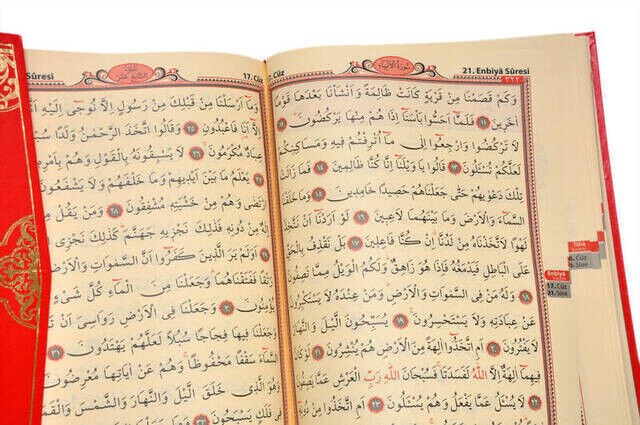 21. Enbiyâ Sûresi
سُورَةُ الْاَنْبِيَاءِ
17. Cüz
وَكَمْ قَصَمْنَا مِنْ قَرْيَةٍ كَانَتْ ظَالِمَةً وَاَنْشَأْنَا بَعْدَهَا قَوْمًا
اٰخَرِينَ ﴿١١﴾ فَلَمَّٓا اَحَسُّوا بَأْسَنَٓا اِذَا هُمْ مِنْهَا يَرْكُضُونَ ﴿١٢﴾
لَا تَرْكُضُوا وَارْجِعُٓوا اِلٰى مَٓا اُتْرِفْتُمْ فِيهِ وَمَسَاكِنِكُمْ
لَعَلَّكُمْ تُسْـَٔلُونَ ﴿١٣﴾ قَالُوا يَا وَيْلَنَٓا اِنَّا كُنَّا ظَالِمِينَ ﴿١٤﴾ فَمَا زَالَتْ
تِلْكَ دَعْوٰيهُمْ حَتّٰى جَعَلْنَاهُمْ حَصِيدًا خَامِدِينَ ﴿١٥﴾ وَمَا خَلَقْنَا
السَّمَٓاءَ وَالْاَرْضَ وَمَا بَيْنَهُمَا لَاعِبِينَ ﴿١٦﴾ لَوْ اَرَدْنَٓا اَنْ نَتَّخِذَ
لَهْوًا لَاتَّخَذْنَاهُ مِنْ لَدُنَّا اِنْ كُنَّا فَاعِلِينَ ﴿١٧﴾ بَلْ نَقْذِفُ بِالْحَقِّ
عَلَى الْبَاطِلِ فَيَدْمَغُهُ فَاِذَا هُوَ زَاهِقٌ وَلَكُمُ الْوَيْلُ مِمَّا تَصِفُونَ
﴿١٨﴾ وَلَهُ مَنْ فِي السَّمٰوَاتِ وَالْاَرْضِ وَمَنْ عِنْدَهُ لَا يَسْتَكْبِرُونَ
عَنْ عِبَادَتِهِ وَلَا يَسْتَحْسِرُونَ ﴿١٩﴾ يُسَبِّحُونَ الَّيْلَ وَالنَّهَارَ
لَا يَفْتُرُونَ ﴿٢٠﴾ اَمِ اتَّخَذُٓوا اٰلِهَةً مِنَ الْاَرْضِ هُمْ يُنْشِرُونَ ﴿٢١﴾
فِيهِمَٓا اٰلِهَةٌ اِلَّا اللّٰهُ لَفَسَدَتَا فَسُبْحَانَ اللّٰهِ رَبِّ الْعَرْشِ عَمَّا يَصِفُونَ
﴿٢٢﴾ لَا يُسْـَٔلُ عَمَّا يَفْعَلُ وَهُمْ يُسْـَٔلُونَ ﴿٢٣﴾ اَمِ اتَّخَذُوا مِنْ دُونِهِ
Tâhâ
Enbiyâ
17. Cüz
21. Sûre
17. Cüz
الجزء السابع عشر
Sûresi
وَمَٓا اَرْسَلْنَا مِنْ قَبْلِكَ مِنْ رَسُولٍ اِلَّا نُوحِٓي اِلَيْهِ
اِلَّٓا اَنَا فَاعْبُدُونِ ﴿٢٥﴾ وَقَالُوا اتَّخَذَ الرَّحْمٰنُ وَلَدًا
عِبَادٌ مُكْرَمُونَ ﴿٢٦﴾ لَا يَسْبِقُونَهُ بِالْقَوْلِ وَهُمْ بِاَمْرِهِ
يَعْلَمُ مَا بَيْنَ اَيْدِيهِمْ وَمَا خَلْفَهُمْ وَلَا يَشْفَعُونَ
وَهُمْ مِنْ خَشْيَتِهِ مُشْفِقُونَ ﴿٢٨﴾ وَمَنْ يَقُلْ
مِنْ دُونِهِ فَذٰلِكَ نَجْزِيهِ جَهَنَّمَ كَذٰلِكَ نَجْزِي
اَوَلَمْ يَرَ الَّذِينَ كَفَرُٓوا اَنَّ السَّمٰوَاتِ وَالْاَرْضَ
رَتْقًا فَفَتَقْنَاهُمَا وَجَعَلْنَا مِنَ الْمَٓاءِ كُلَّ شَيْءٍ
يُؤْمِنُونَ ﴿٣٠﴾ وَجَعَلْنَا فِي الْاَرْضِ رَوَاسِيَ اَنْ
وَجَعَلْنَا فِيهَا فِجَاجًا سُبُلًا لَعَلَّهُمْ يَهْتَدُونَ ﴿٣١﴾
السَّمَٓاءَ سَقْفًا مَحْفُوظًا وَهُمْ عَنْ اٰيَاتِهَا مُعْرِضُونَ
وَهُوَ الَّذِي خَلَقَ الَّيْلَ وَالنَّهَارَ وَالشَّمْسَ وَالْقَمَرَ
فِي فَلَكٍ يَسْبَحُونَ ﴿٣٣﴾